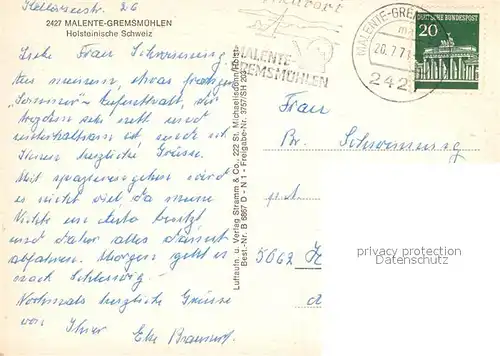 2427 MALENTE-GREMSMÜHLEN
Holsteinische Schweiz
Liebe Frau Schwinning
Aus meinem, etwas
"Sommer"-Aufenthalt, der
trotzdem sehr nett und
unterhaltsam ist, sende ich
Ihnen herzliche Grüsse.
Mit spazierengehen wird
es nicht viel, da meine
Nichte ein Auto besitzt
und daher alles damit
abfahren. Morgen geht es
nach Schleswig.
Nochmals herzliche Grüsse
von Ihrer
Luftaufn. u. Verlag Stramm & Co., 222 St. Michaelisdonn/Holst.
Best.-Nr. B 5867 D - N 1 - Freigabe-Nr. 3757/SH 203
MALENTE-
GREMSMÜHLEN
MALENTE-GREM
20.7.71
242
DEUTSCHE BUNDESPOST
20
Frau
Br. Schwinning
5662
privacy protection
Datenschutz